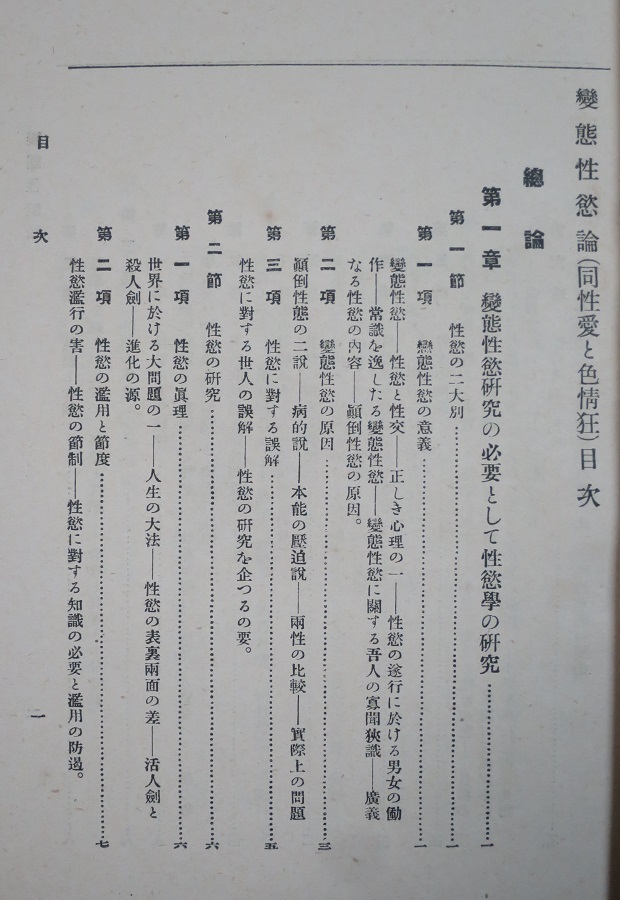 變態性慾論(同性愛と色情狂)目次
總論
第一章 變態性慾硏究の必要として性慾學の硏究……一
第一節 性慾の二大別……一
第一項 變態性慾の意義……一
變態性慾――性慾と性交――正しき心理の一――性慾の遂行に於ける男女の働
作――常識を逸したる變態性慾――變態性慾に關する吾人の寡聞狹識――廣義
なる性慾の內容――顚倒性慾の原因。
第二項 變態性慾の原因……三
顚倒性態の二說――病的說――本能の壓迫說――兩性の比較――實際上の問題
第三項 性慾に對する誤解……五
性慾に對する世人の誤解――性慾の硏究を企つるの要。
第二節 性慾の硏究……六
第一項 性慾の眞理……六
世界に於ける大問題の一――人生の大法――性慾の表裏兩面の差――活人劍と
殺人劍――進化の源。
第二項 性慾の濫用と節度……七
性慾濫行の害――性慾の節制――性慾に對する知識の必要と濫用の防遏。
目次 一